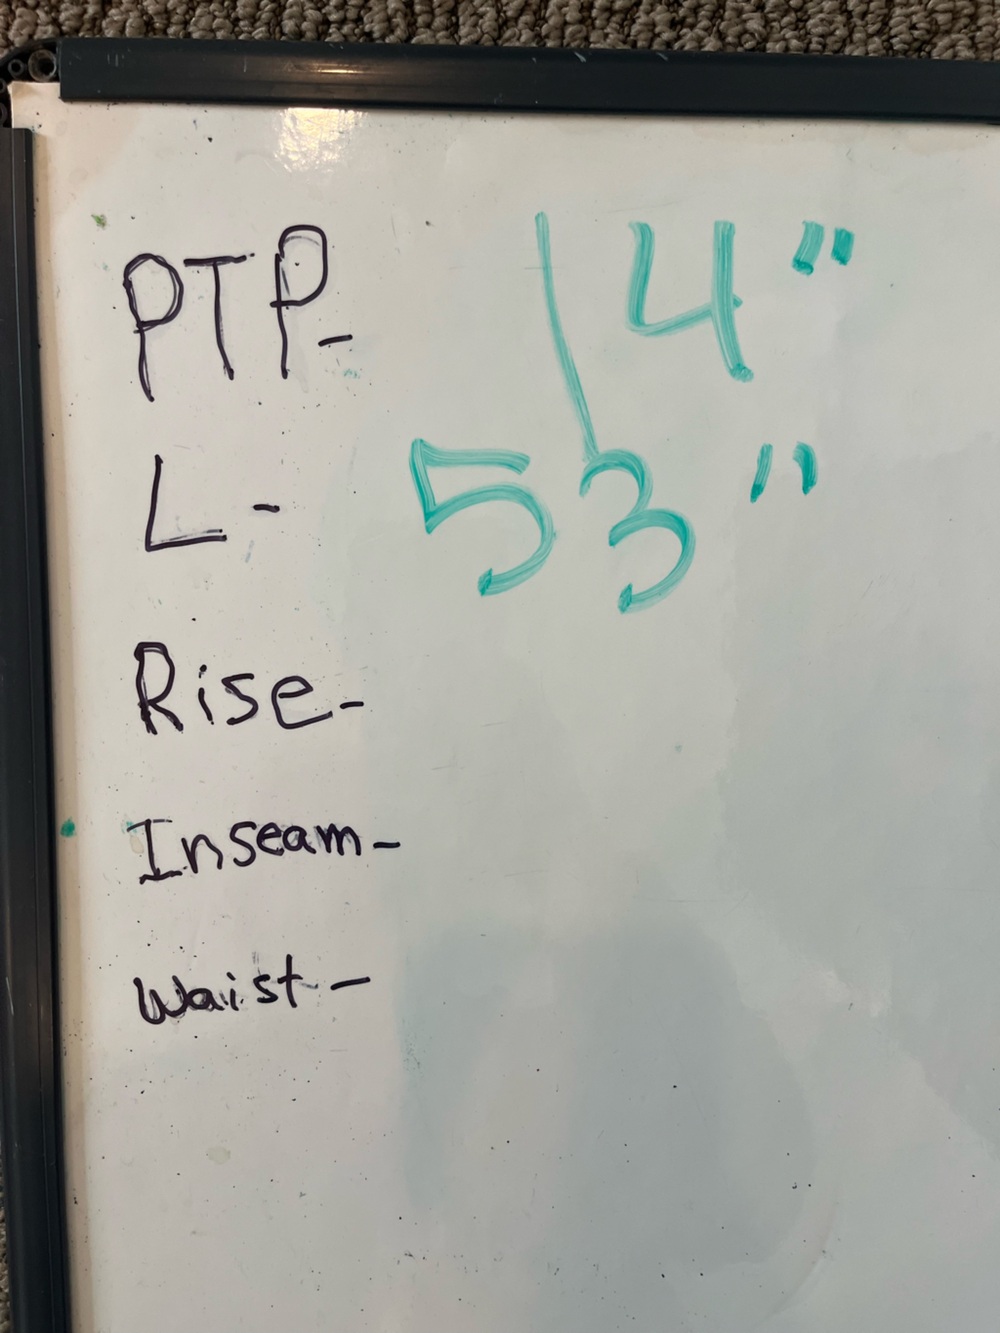 PTP- 14"
L- 53"
Rise-
Inseam-
Waist-